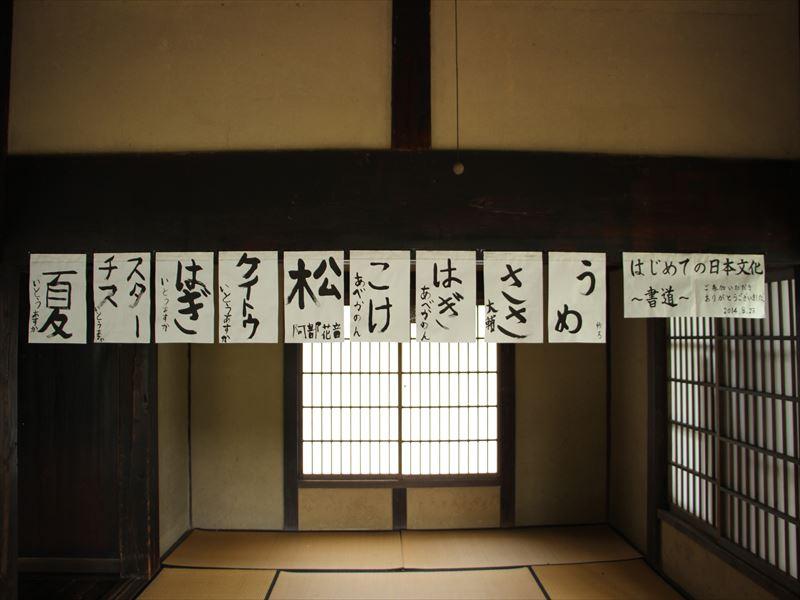 はじめての日本文化
～書道～
ご参加いただき
ありがとうございました
2014.9.23
うめ
ささ
大輔
はぎ
あべかのん
こけ
あべかのん
松
阿部花音
ケイトウ
いとうあすか
はぎ
いとうあすか
スター
チマ
夏
いとうあすか